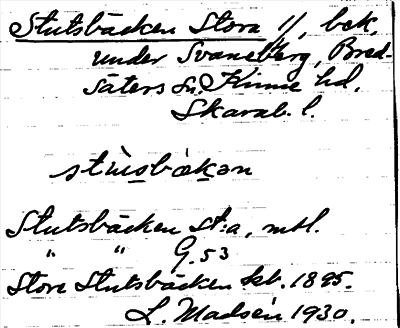 Stutsbäcken Stora 1/1, bek.
under Svaneberg, Bred-
säters sn, Kinne hd,
Skarab. l.
stùsbækan
Stutsbäcken St:a, mtl.
" " G. 53
Stora Stutsbäcken kb. 1895.
L. Madsén 1930.